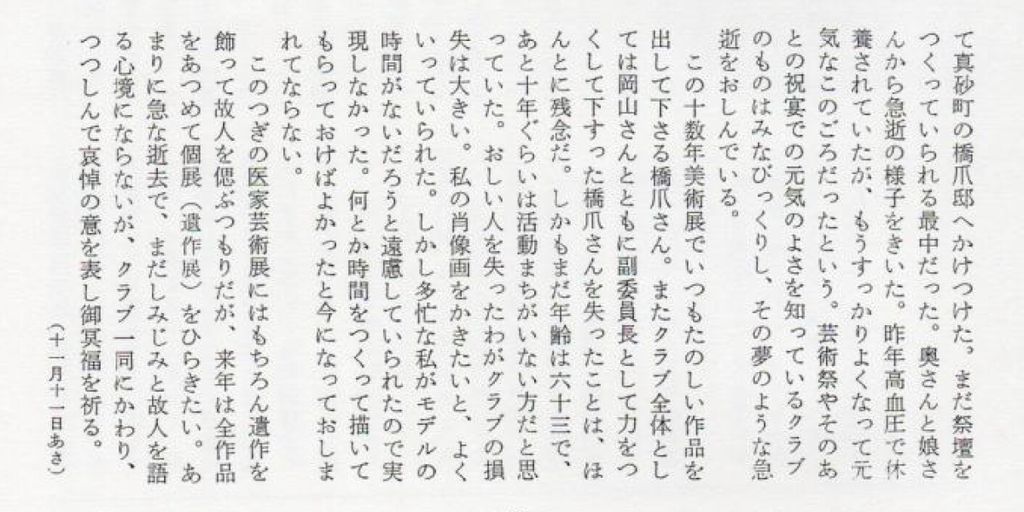 て真砂町の橋爪邸へかけつけた。まだ祭壇を
つくっていられる最中だった。奥さんと娘さ
んから急逝の様子をきいた。昨年高血圧で休
養されていたが、もうすっかりよくなって元
気なこのごろだったという。芸術祭やそのあ
との祝宴での元気のよさを知っているクラブ
のものはみなびっくりし、その夢のような急
逝をおしんでいる。
この十数年美術展でいつもたのしい作品を
出して下さる橋爪さん。またクラブ全体とし
ては岡山さんとともに副委員長として力をつ
くして下すった橋爪さんを失ったことは、ほ
んとに残念だ。しかもまだ年齢は六十三で、
あと十年ぐらいは活動まちがいない方だと思
っていた。おしい人を失ったわがクラブの損
失は大きい。私の肖像画をかきたいと、よく
いっていられた。しかし多忙な私がモデルの
時間がないだろうと遠慮していられたので実
現しなかった。何とか時間をつくって描いて
もらっておけばよかったと今になっておしま
れてならない。
このつぎの医家芸術展にはもちろん遺作を
飾って故人を偲ぶつもりだが、来年は全作品
をあつめて個展（遺作展）をひらきたい。あ
まりに急な逝去で、まだしみじみと故人を語
る心境にならないが、クラブ一同にかわり、
つつしんで哀悼の意を表し御冥福を祈る。
（十一月十一日あさ）